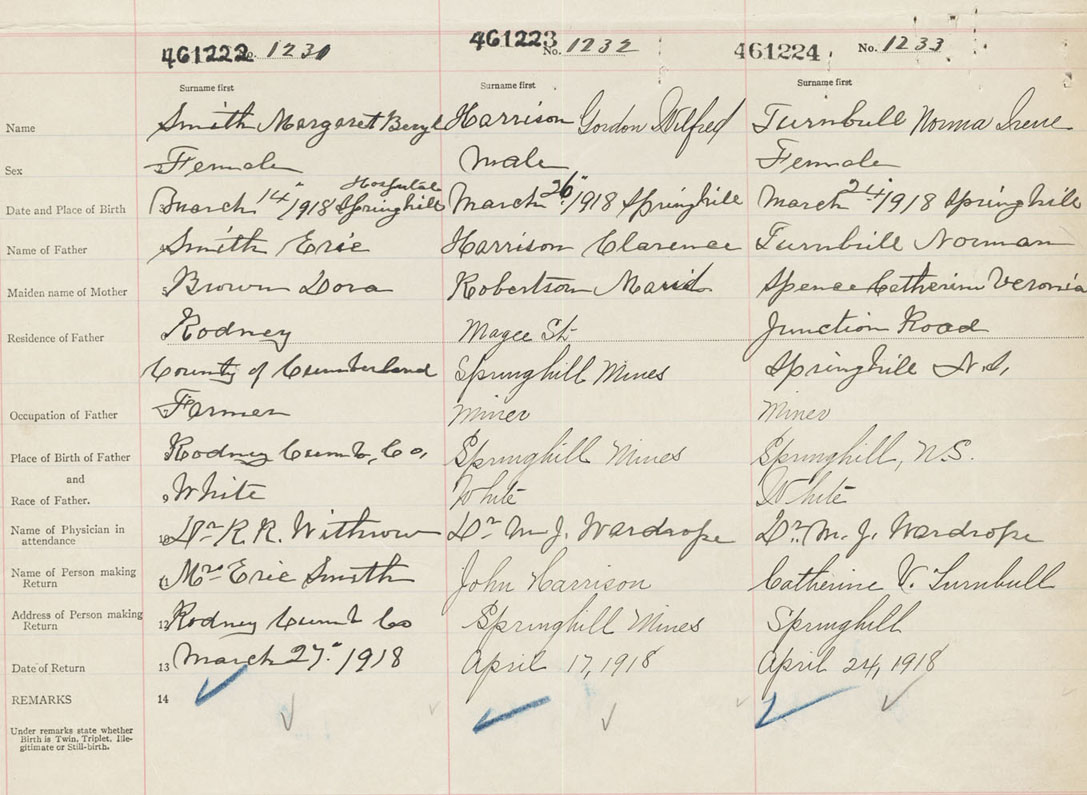 461222 No. 1231 461223 No. 1232 461224 No. 1233
Surname first Surname first Surname first
Name Smith Margaret Beryl Harrison Gordon Wilfred Turnbull Norma Irene
Sex Female Male Female
Hospital
Date and Place of Birth 3 March 14" 1918 Springhill March 26" 1918 Springhill March 24" 1918 Springhill
Name of Father 4 Smith Eric Harrison Clarence Turnbull Norman
Maiden name of Mother 5 Brown Dora Robertson Spence Catherine Veronia
Residence of Father Rodney Magee St. Junction Road
County of Cumberland Springhill Mines Springhill N.S.
Occupation of Father 7 Farmer Miner Miner
Place of Birth of Father Rodney Cumb. Co. Springhill Mines Springhill, N.S.
and
Race of Father. 9 White White White
Name of Physician in
attendance 10 Dr R. R. Withrow Dr M. J. Wardrope Dr. M. J. Wardrope
Name of Person making
Return 11 Mrs Eric Smith John Harrison Catherine V. Turnbull
Address of Person making
Return 12 Rodney Cumb Co Springhill Mines Springhill
Date of Return 13 March 27" 1918 April 17, 1918 April 24, 1918
REMARKS 14
Under remarks state whether
Birth is Twin, Triplet, Ille-
gitimate or Still-birth.